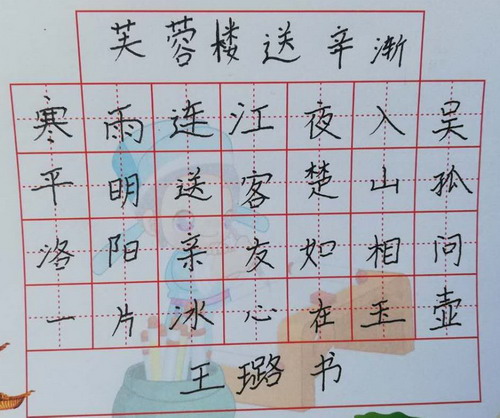 芙蓉楼送辛渐
寒雨连江夜入吴
平明送客楚山孤
洛阳亲友如相问
一片冰心在玉壶
王璐书